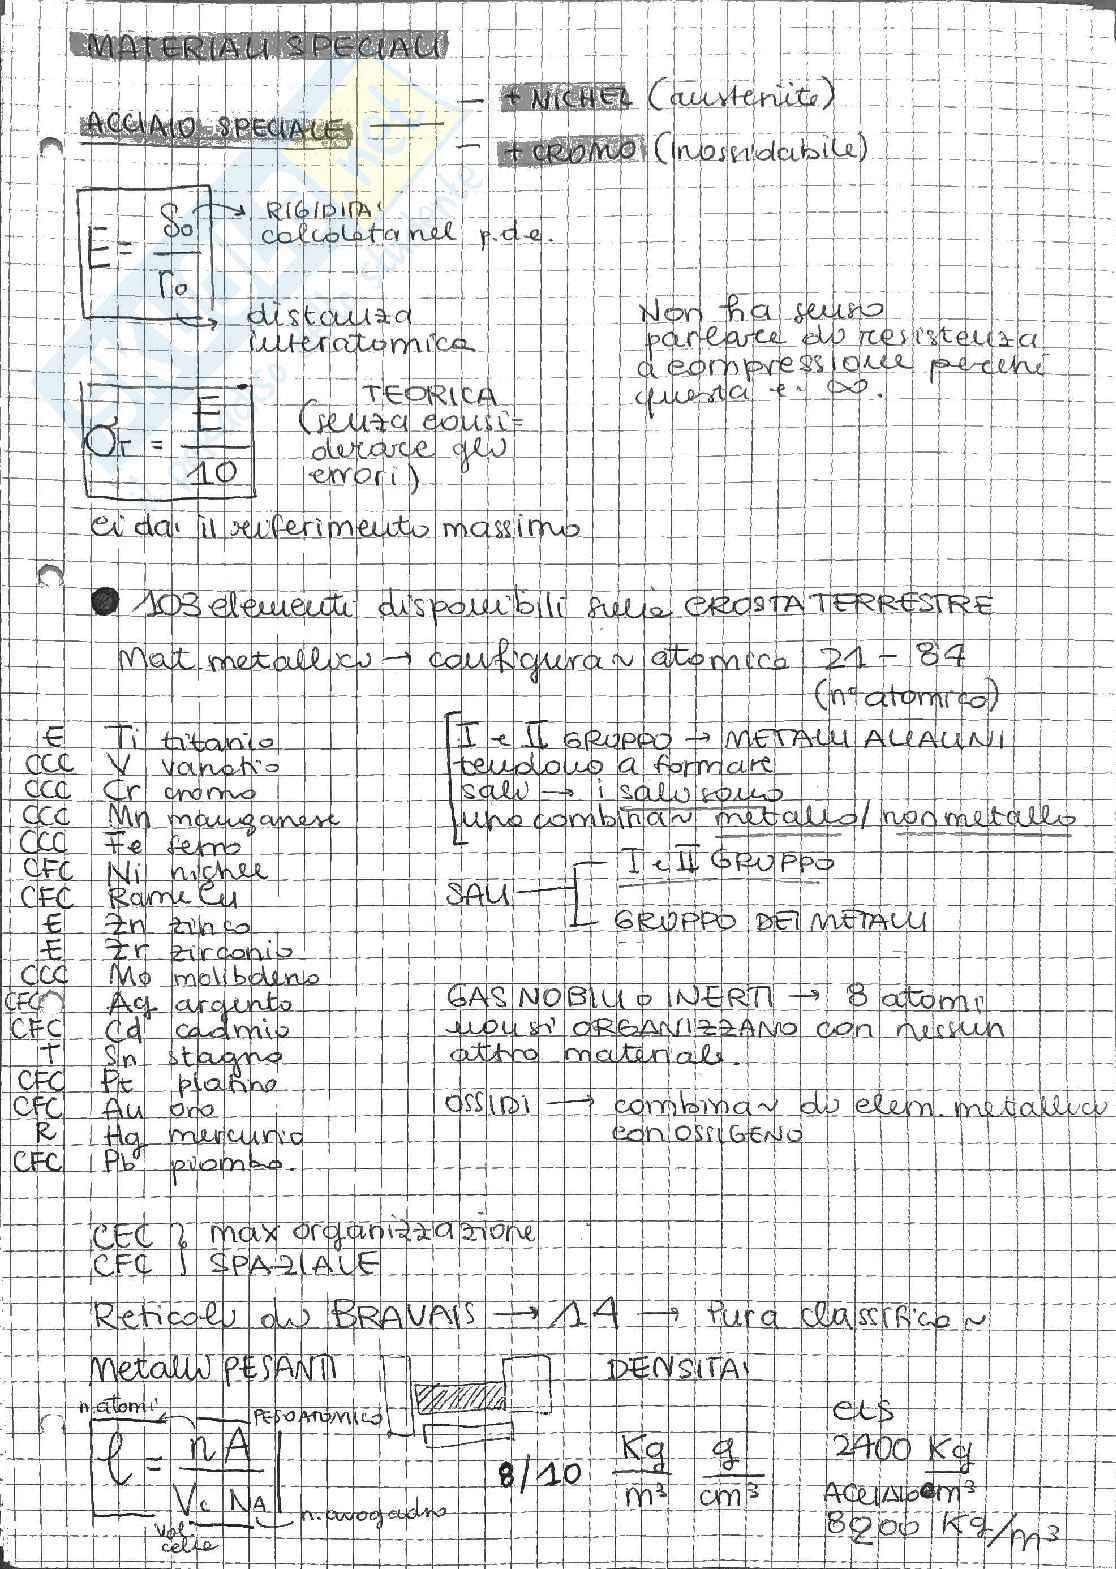 MATERIALI SPECIALI
ACCIAIO SPECIALE
- + NICHEL (austenite)
- + CROMO (inossidabile)
E = S₀ / r₀
RIGIDITA'
calcolata nel p.d.e.
distanza
interatomica
Non ha senso
parlare di resistenza
a compressione perché
questa è ∞.
σT = E / 10
TEORICA
(senza consi-
derare gli
errori)
ci da' il riferimento massimo
● 103 elementi disponibili sulla CROSTA TERRESTRE
Mat. metallico → configura~ atomica 21 - 84
(n° atomico)
E Ti titanio
CCC V vanadio
CCC Cr cromo
CCC Mn manganese
CCC Fe ferro
CFC Ni nichel
CFC Rame Cu
E Zn zinco
E Zr zirconio
CCC Mo molibdeno
CFC Ag argento
CFC Cd cadmio
T Sn stagno
CFC Pt platino
CFC Au oro
R Hg mercurio
CFC Pb piombo.
I e II GRUPPO → METALLI ALCALINI
tendono a formare
sali → i sali sono
una combina~ metallo/non metallo
SALI
I e II GRUPPO
GRUPPO DEI METALLI
GAS NOBILI o INERTI → 8 atomi
non si ORGANIZZANO con nessun
altro materiale.
OSSIDI → combina~ di elem. metallico
con OSSIGENO
CEC } max organizzazione
CFC } SPAZIALE
Reticoli di BRAVAIS → 14 → Pura classifica~
Metalli PESANTI
n. atomi
PESO ATOMICO
ρ = nA / Vc NA
vol.
celle
n. avogadro
8/10
DENSITA'
Kg/m³ g/cm³
cls
2400 Kg/m³
ACCIAIO
8200 Kg/m³